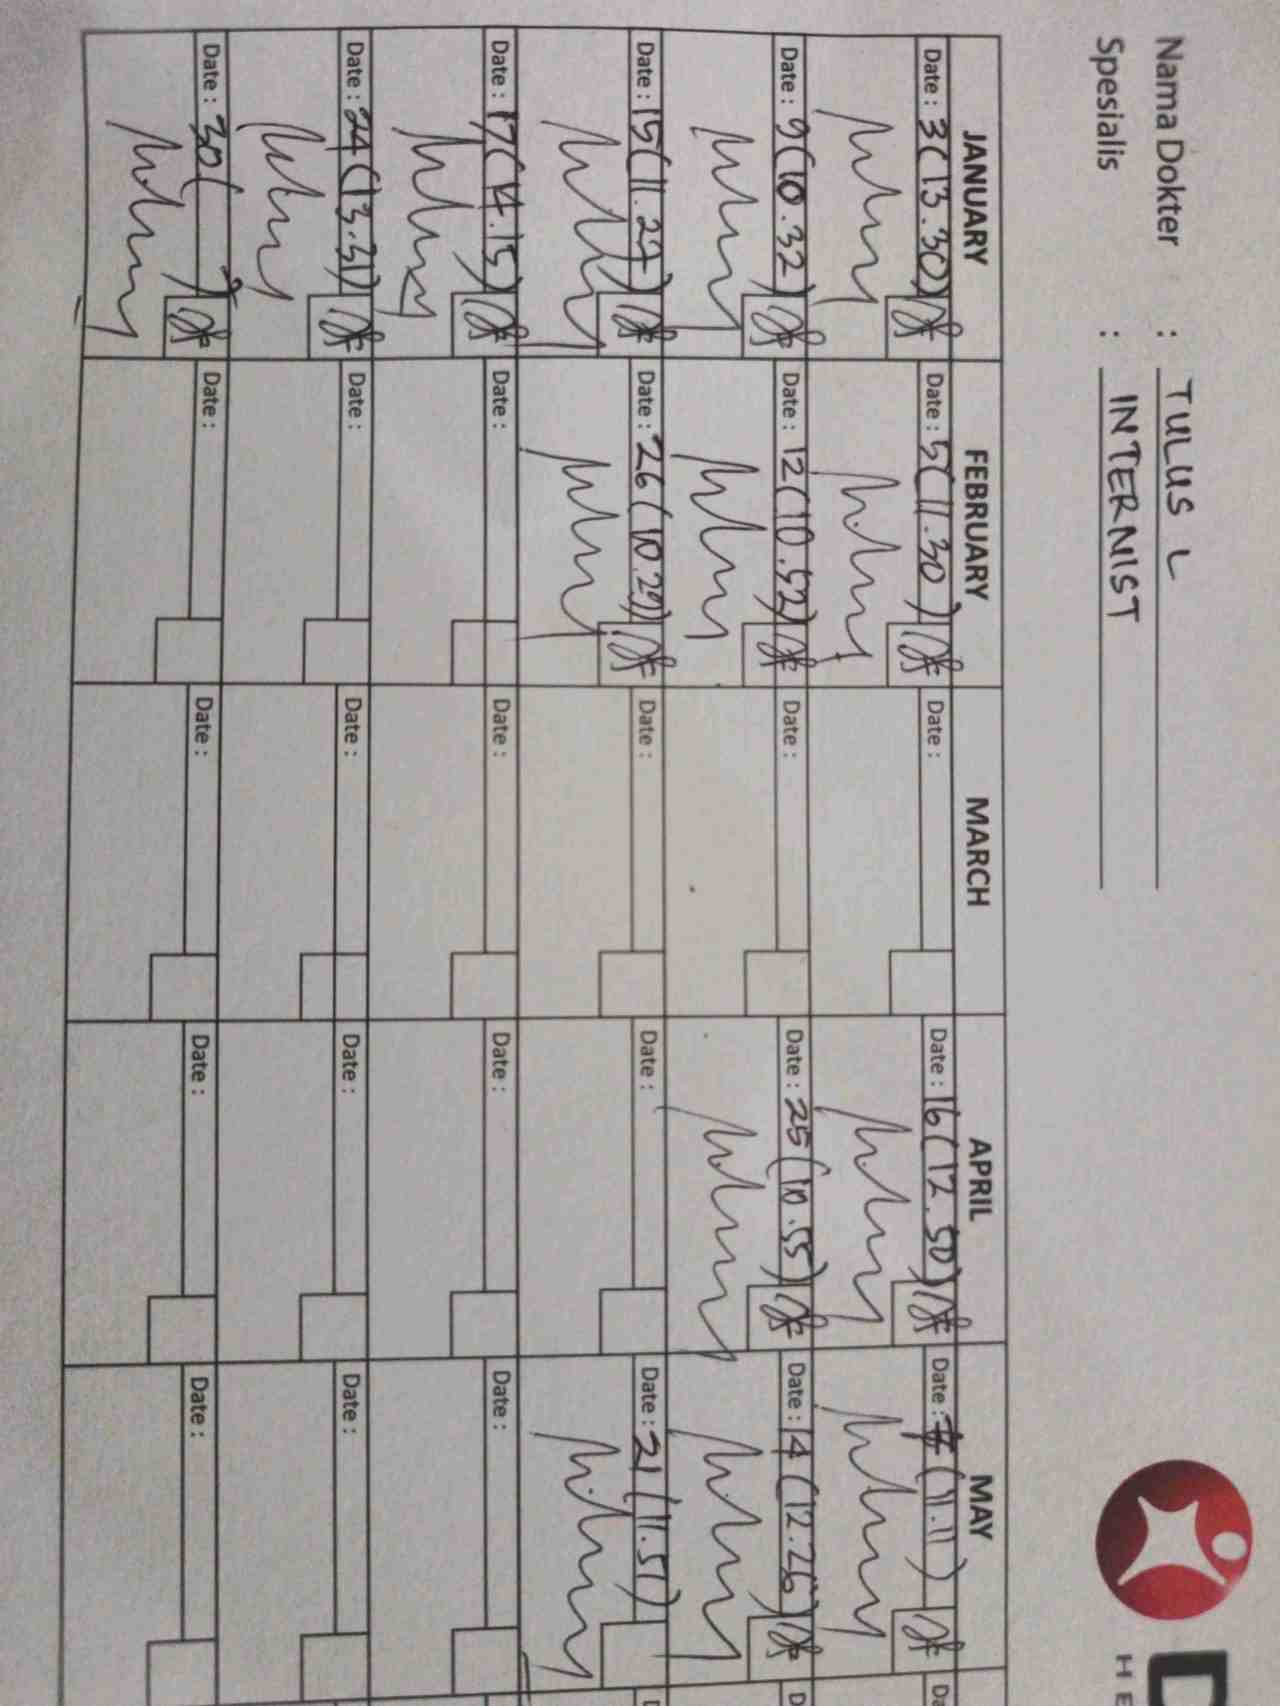 Nama Dokter : TULUS L
Spesialis : INTERNIST
JANUARY FEBRUARY MARCH APRIL MAY
Date : 3 (13.30) Date : 5 (11.30) Date : Date : 16 (12.50) Date : 7 (11.11)
Date : 9 (10.32) Date : 12 (10.52) Date : Date : 25 (10.55) Date : 14 (12.26)
Date : 15 (11.27) Date : 26 (10.29) Date : Date : Date : 21 (11.51)
Date : 17 (14.15) Date : Date : Date : Date :
Date : 24 (13.31) Date : Date : Date : Date :
Date : 30 ( ) Date : Date : Date : Date :